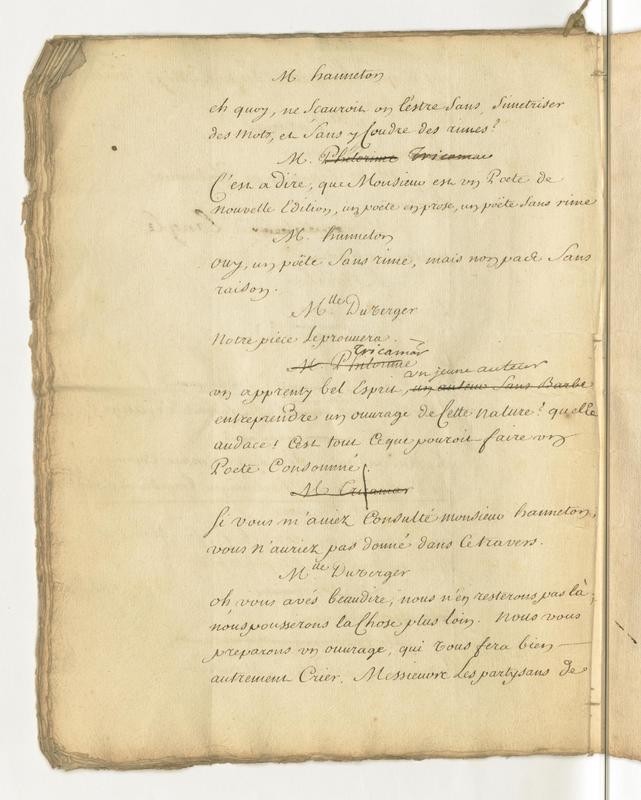 M. hanneton
eh quoy, ne scauroit on l'estre sans simetriser
des mots, et sans y coudre des rimes?
M. Philorime Tricamar
C'est a dire, que Monsieur est un Poete de
nouvelle Edition, un poete en prose, un poëte sans rime
M. hanneton
ouy, un poëte sans rime, mais non pas sans
raison.
Mlle Duverger
Notre piece le prouvera.
M Philorime Tricamar
un jeune auteur
un apprenty bel Esprit, un auteur sans Barbe
entreprendre un ouvrage de cette nature! quelle
audace! C'est tout ce que pouroit faire un
Poete Consommé.
M Tricamar
si vous m'auiez Consulté monsieur hanneton,
vous n'auriez pas donné dans ce travers.
Mlle Duverger
oh vous avés beau dire, nous n'en resterons pas là;
nous pousserons la Chose plus loin. Nous vous
preparons un ouvrage, qui vous fera bien
autrement Crier. Messieurs les partysans de